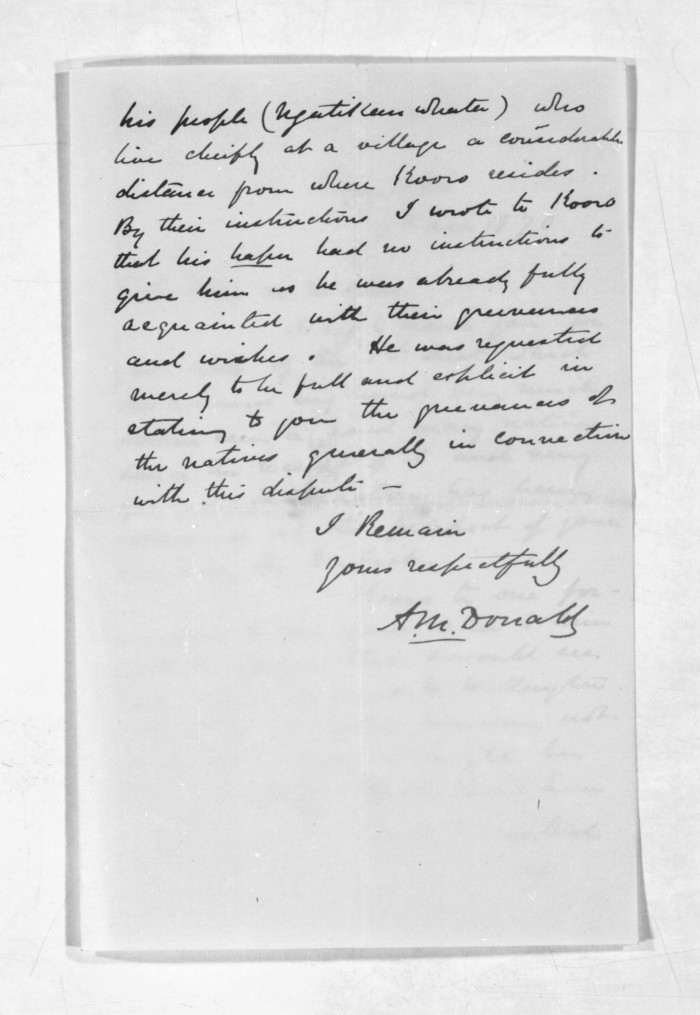 his people (Ngatikauwhata) who
live chiefly at a village a considerable
distance from where Kooro resides.
By their instructions I wrote to Kooro
that his hapu had no instructions to
give him as he was already fully
acquainted with their greivances
and wishes. He was requested
merely to be full and explicit in
stating to you the greivances of
the natives generally in connection
with this dispute –
I Remain
yours respectfully
A.McDonald